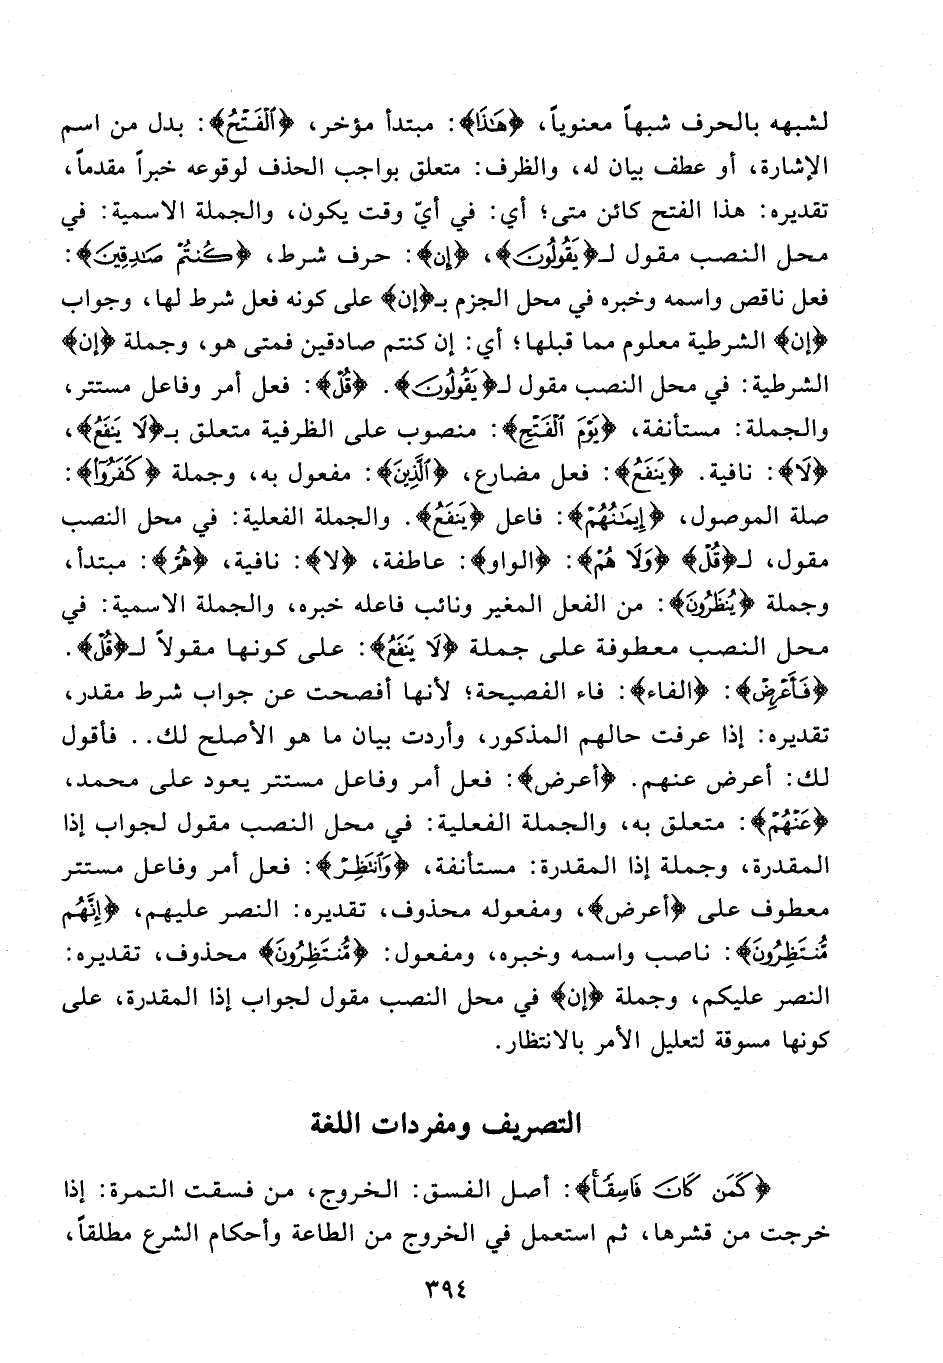 لشبهه بالحرف شبهاً معنوياً، ﴿هَٰذَا﴾: مبتدأ مؤخر، ﴿ٱلْفَتْحُ﴾: بدل من اسم
الإشارة، أو عطف بيان له، والظرف: متعلق بواجب الحذف لوقوعه خبراً مقدماً،
تقديره: هذا الفتح كائن متى؛ أي: في أيّ وقت يكون، والجملة الاسمية: في
محل النصب مقول لـ﴿يَقُولُونَ﴾، ﴿إن﴾: حرف شرط، ﴿كُنتُمْ صَٰدِقِينَ﴾:
فعل ناقص واسمه وخبره في محل الجزم بـ﴿إن﴾ على كونه فعل شرط لها، وجواب
﴿إن﴾ الشرطية معلوم مما قبلها؛ أي: إن كنتم صادقين فمتى هو، وجملة ﴿إن﴾
الشرطية: في محل النصب مقول لـ﴿يَقُولُونَ﴾. ﴿قُلْ﴾: فعل أمر وفاعل مستتر،
والجملة: مستأنفة، ﴿يَوْمَ ٱلْفَتْحِ﴾: منصوب على الظرفية متعلق بـ﴿لَا يَنفَعُ﴾،
﴿لَا﴾: نافية. ﴿يَنفَعُ﴾: فعل مضارع، ﴿ٱلَّذِينَ﴾: مفعول به، وجملة ﴿كَفَرُوٓا۟﴾:
صلة الموصول، ﴿إِيمَٰنُهُمْ﴾: فاعل ﴿يَنفَعُ﴾. والجملة الفعلية: في محل النصب
مقول، لـ﴿قُلْ﴾ ﴿وَلَا هُمْ﴾: ﴿الواو﴾: عاطفة، ﴿لا﴾: نافية، ﴿هُمْ﴾: مبتدأ،
وجملة ﴿يُنظَرُونَ﴾: من الفعل المغير ونائب فاعله خبره، والجملة الاسمية: في
محل النصب معطوفة على جملة ﴿لَا يَنفَعُ﴾: على كونها مقولاً لـ﴿قُلْ﴾.
﴿فَأَعْرِضْ﴾: ﴿الفاء﴾: فاء الفصيحة؛ لأنها أفصحت عن جواب شرط مقدر،
تقديره: إذا عرفت حالهم المذكور، وأردت بيان ما هو الأصلح لك.. فأقول
لك: أعرض عنهم. ﴿أعرض﴾: فعل أمر وفاعل مستتر يعود على محمد،
﴿عَنْهُمْ﴾: متعلق به، والجملة الفعلية: في محل النصب مقول لجواب إذا
المقدرة، وجملة إذا المقدرة: مستأنفة، ﴿وَٱنتَظِرْ﴾: فعل أمر وفاعل مستتر
معطوف على ﴿أعرض﴾، ومفعوله محذوف، تقديره: النصر عليهم، ﴿إِنَّهُم
مُّنتَظِرُونَ﴾: ناصب واسمه وخبره، ومفعول: ﴿مُّنتَظِرُونَ﴾ محذوف، تقديره:
النصر عليكم، وجملة ﴿إن﴾ في محل النصب مقول لجواب إذا المقدرة، على
كونها مسوقة لتعليل الأمر بالانتظار.
التصريف ومفردات اللغة
﴿كَمَن كَانَ فَاسِقًاۚ﴾: أصل الفسق: الخروج، من فسقت التمرة: إذا
خرجت من قشرها، ثم استعمل في الخروج من الطاعة وأحكام الشرع مطلقاً،
٣٩٤